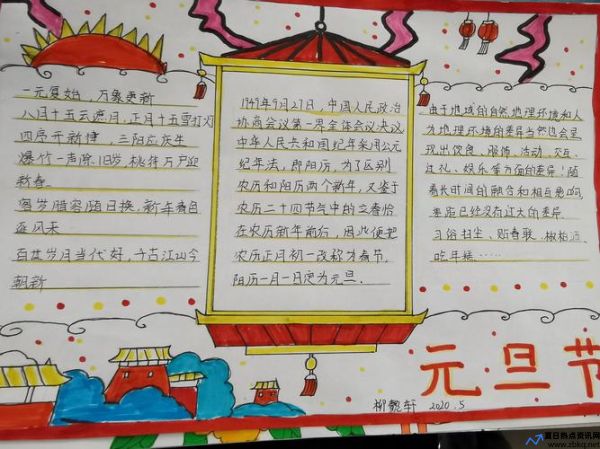 一元复始 万象更新
八月十五云遮月,正月十五雪打灯
四序开新律,三阳应庆生
爆竹一声除旧岁,桃符万户迎
新春.
岁容随日换.新年春色
百岁岁月当代好,千古江山今
朝新
1949年9月27日,中国人民政治
协商会议第一界全体会议决议,
中华人民共和国纪年采用公元
纪年法,即阳历,为了区别
农历和阳历两个新年,又鉴于
农历二十四节气中的立春恰
在农历新年前后,因此便把
农历正月初一改称为春节,
阳历一月一日定为元旦.
由于地域的自然地理环境和人
为地理环境的差异当然也会呈
现出饮食、服饰、活动、交互、
礼、娱乐等方面的差异!随
着长时间的融合和相互影响,
已经没有过大的差异.
习俗扫尘、贴春联、
吃年糕……
元旦节
柳 轩 2020.5
夏日热点资讯网
www.zbkq.net.cn